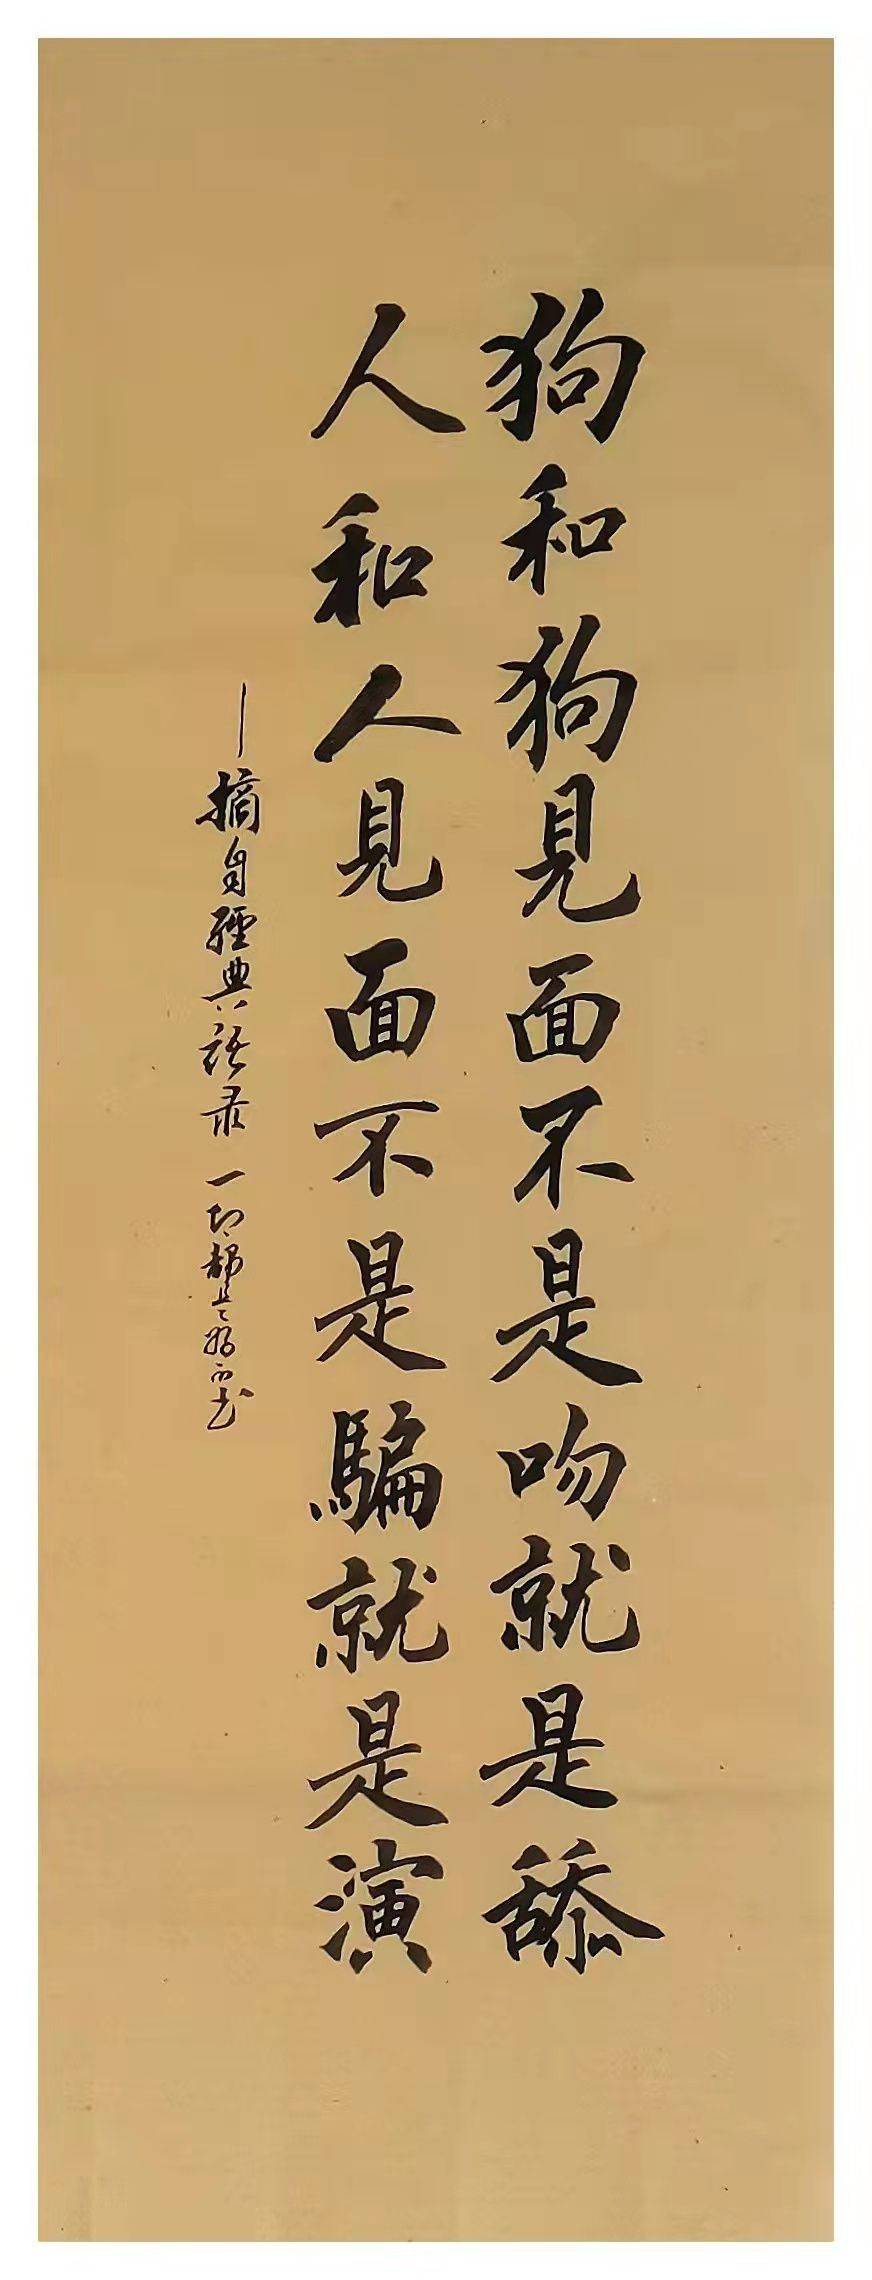 狗和狗見面不是吻就是舔
人和人見面不是騙就是演
—摘自經典語录 一切都是